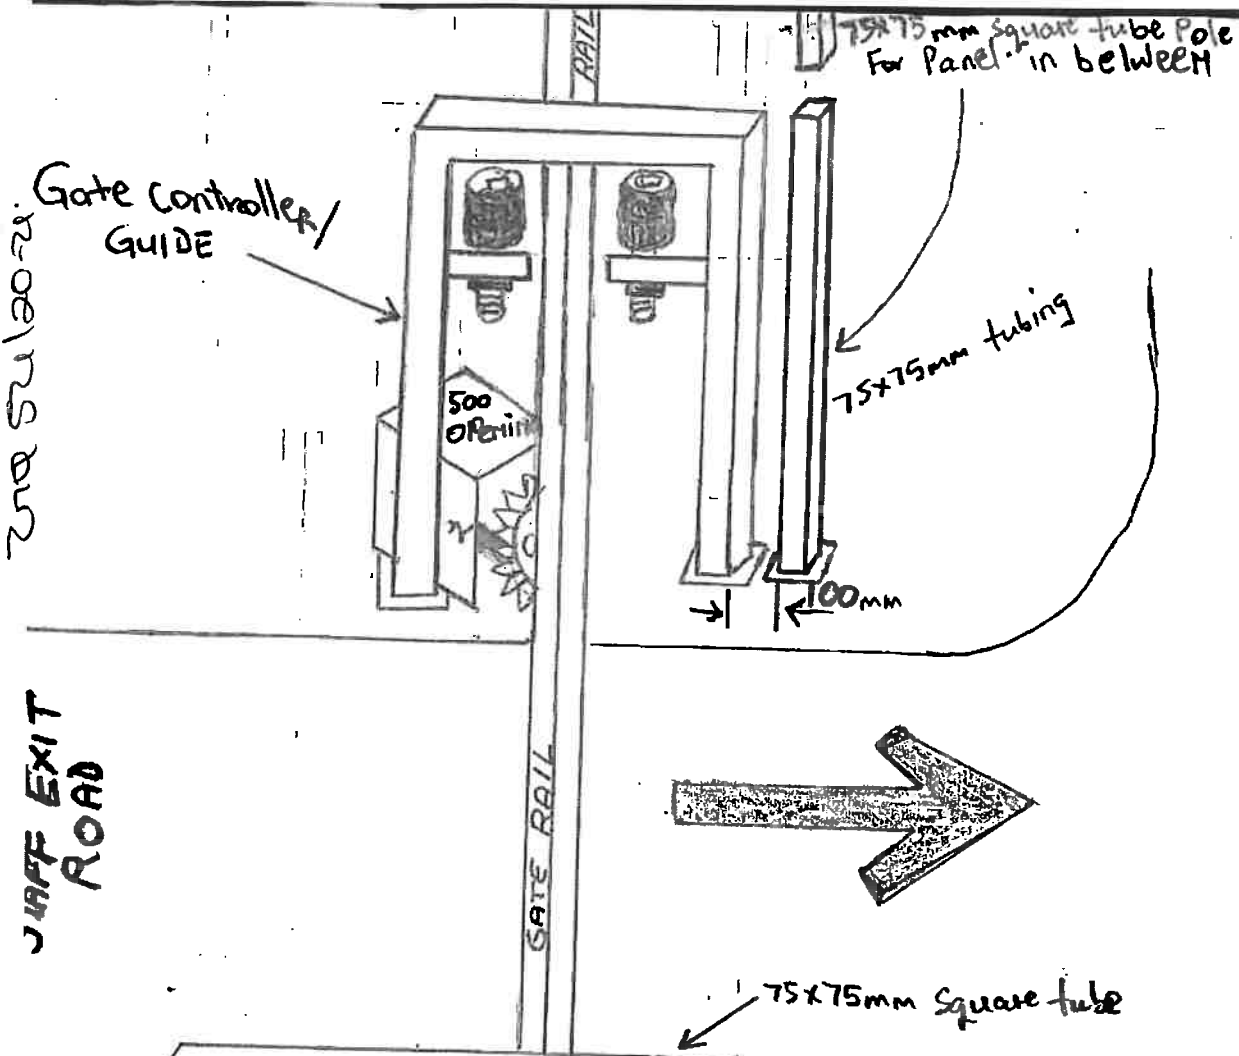 RAIL
75x75mm square tube Pole
For Panel in between
Gate controller/
GUIDE
500
OPenin
75x75mm tubing
100mm
EXIT
ROAD
GATE RAIL
75x75mm Square tube